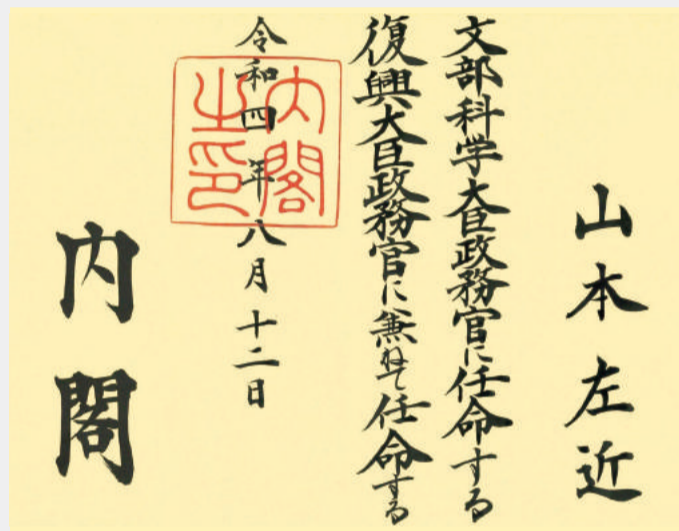 山本左近
文部科学大臣政務官に任命する
復興大臣政務官に兼ねて任命する
令和四年八月十二日
内閣
内閣
之印